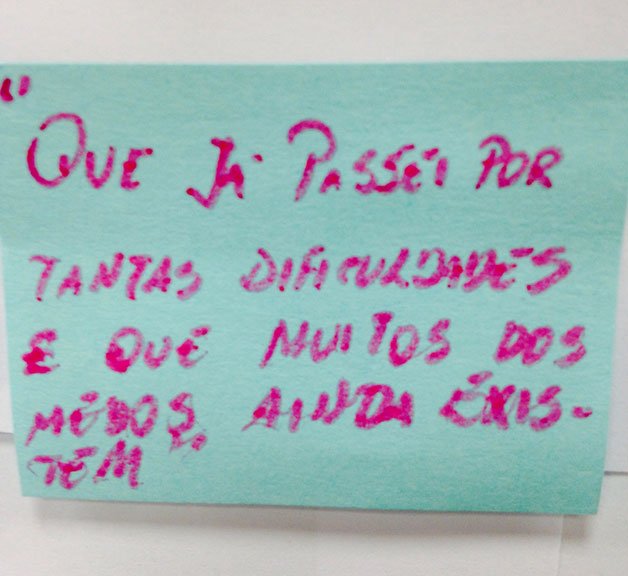 "QUE JÁ PASSEI POR
TANTAS DIFICULDADES
E QUE MUITOS DOS
MEDOS, AINDA EXIS-
TEM"